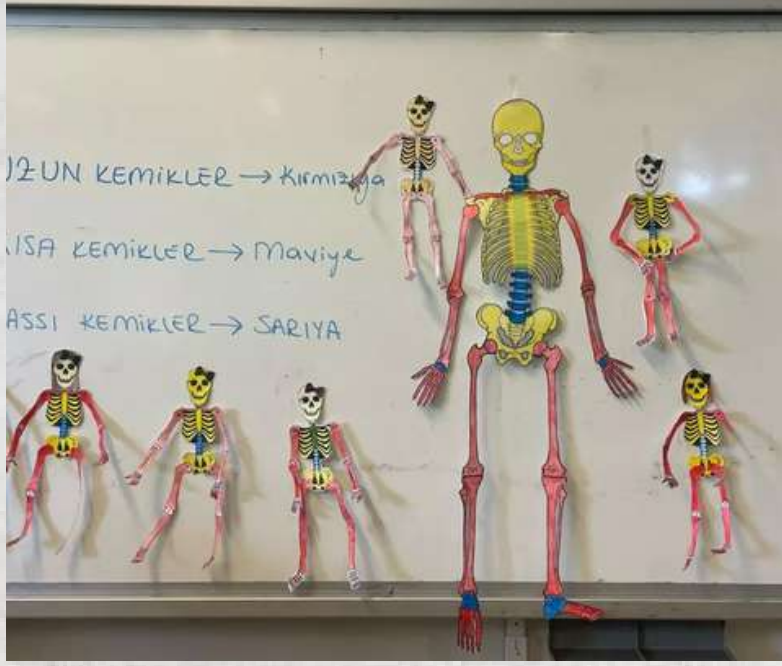 UZUN KEMİKLER → Kırmızıya
ISA KEMİKLER → Maviye
ASSI KEMİKLER → SARIYA